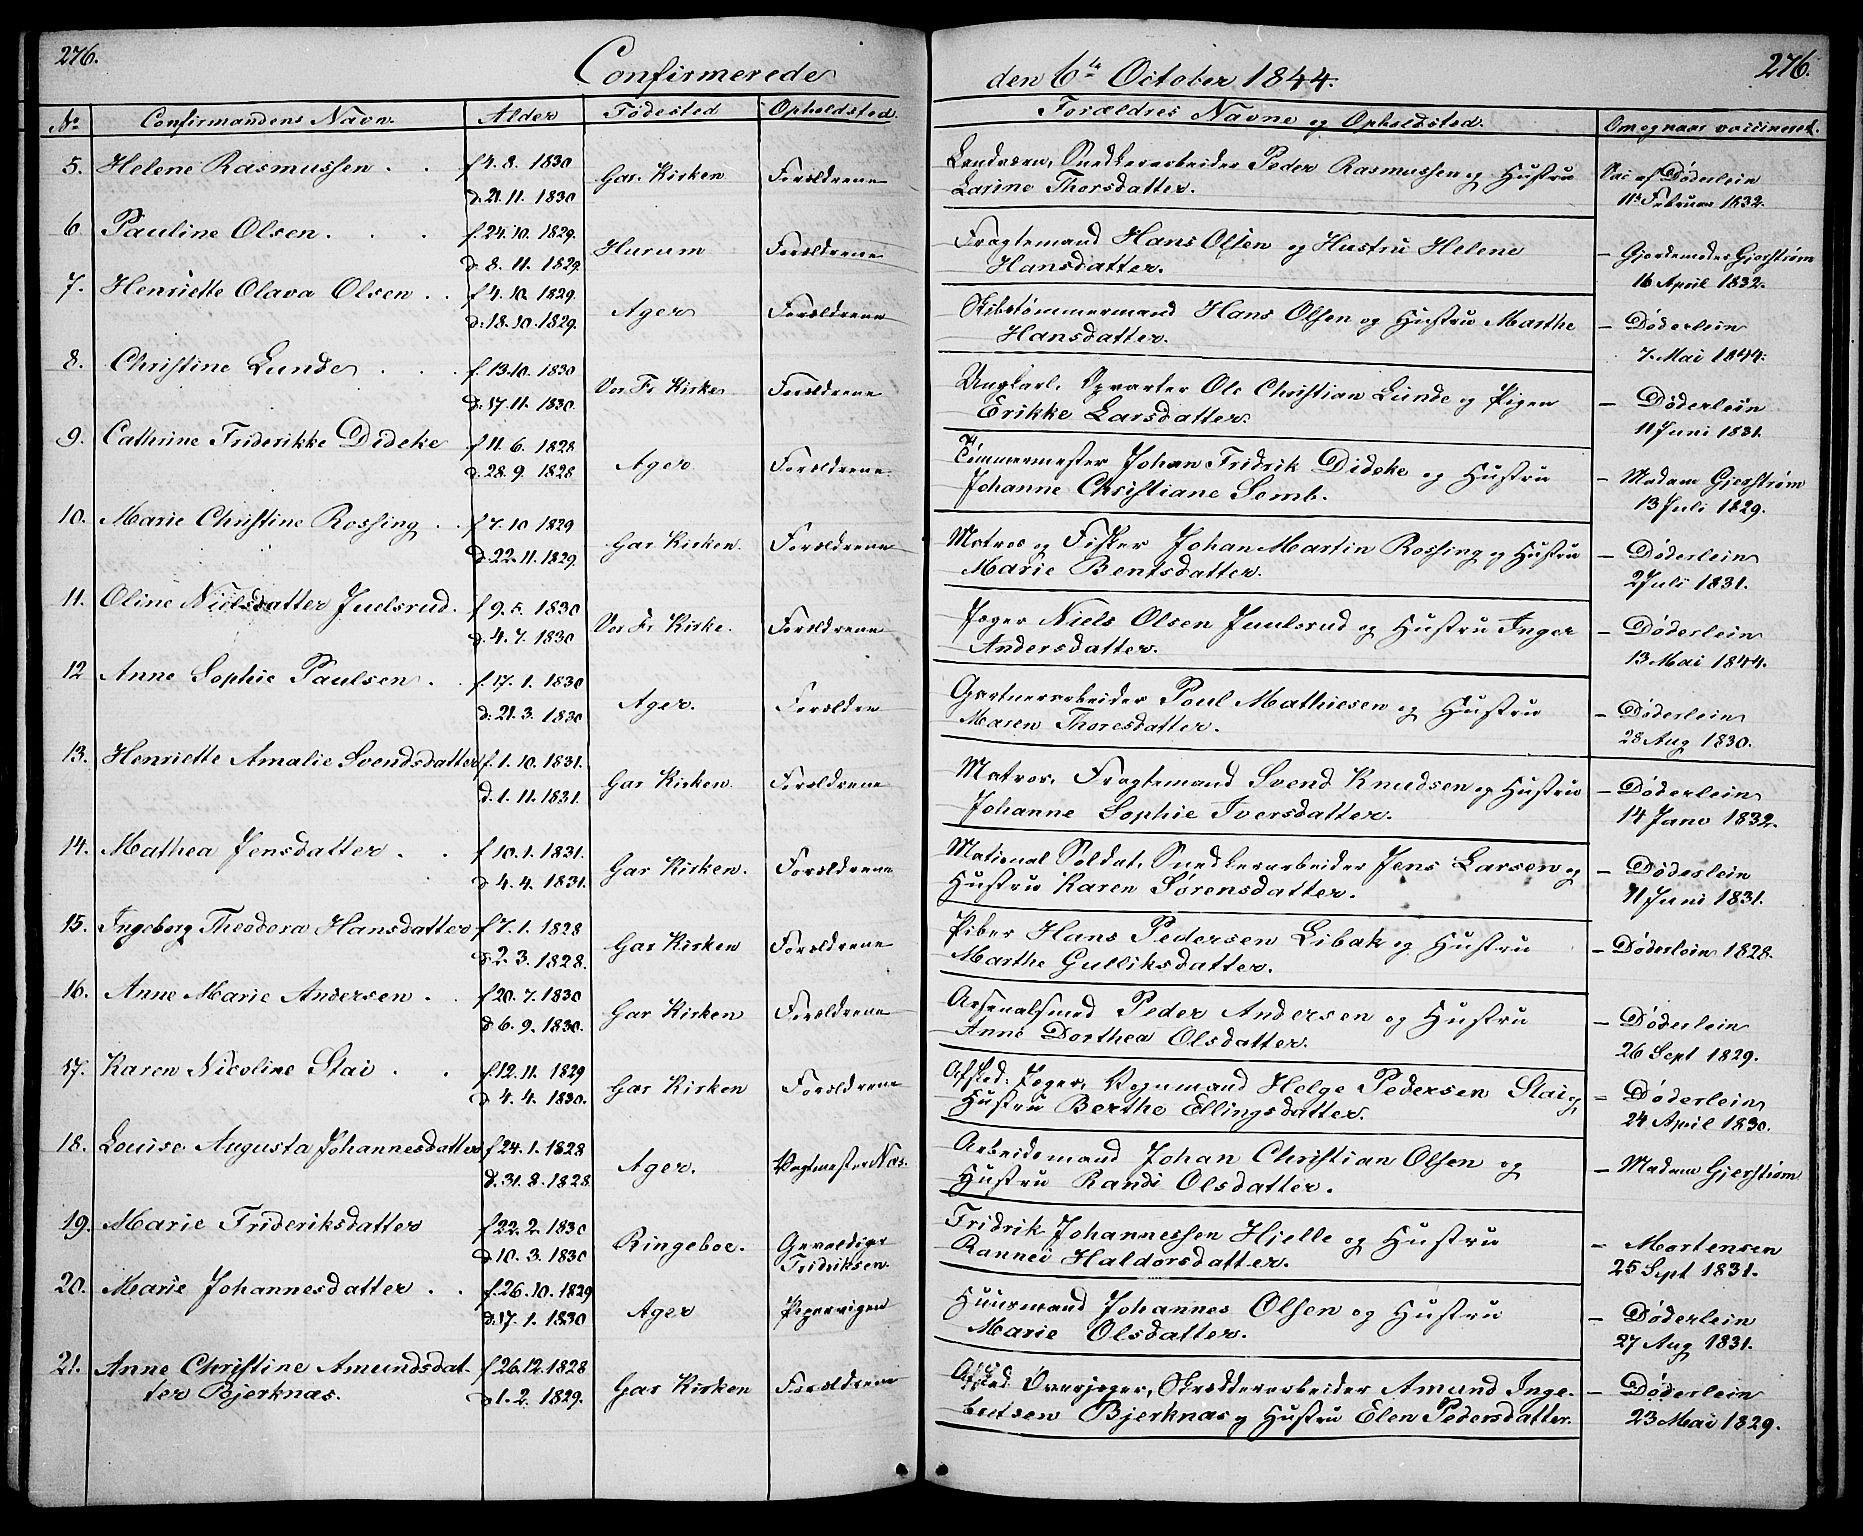 276.
Confirmerede
den 6te October 1844.
276.
No Confirmandens Navn. Alder Fødested Opholdsted. Forældres Navne og Opholdsted. Om og naar vaccineret.
5. Helene Rasmussen . . f 4. 8. 1830 Gar. Kirken Forældrene Landværn, Snedkerarbeider Peder Rasmussen og Hustru Vac af Døderlein
d. 21. 11. 1830 Larine Thorsdatter. 11te Februar 1832.
6 Pauline Olsen . . . f. 24. 10. 1829. Hurum Forældrene Fragtemand Hans Olsen og Hustru Helene – Gjordemoder Gjerstrøm
d. 8. 11. 1829. Hansdatter. 16 April 1832.
7. Henriette Olava Olsen . . f 4. 10. 1829. Ager Forældrene Skibstømmermand Hans Olsen og Hustru Marthe – Døderlein
d. 18. 10. 1829. Hansdatter. 7. Mai 1844.
8. Christine Lunde . . . f. 13. 10. 1830 Vor Fr Kirke Forældrene Ungkarl, Opvarter Ole Christian Lunde og Pigen – Døderlein
d. 17. 11. 1830. Erikke Larsdatter. 11 Juni 1831.
9. Cathrine Friderikke Dideke f 11. 6. 1828 Ager Forældrene Tømmermester Johan Fridrik Dideke og Hustru – Madam Gjerstrøm
d. 28. 9. 1828 Johanne Christiane Lemb. 13 Juli 1829.
10. Marie Christine Rossing . . f 7. 10 1829 Gar Kirken. Forældrene Matros og Fisker Johan Martin Rossing og Hustru – Døderlein
d. 22. 11. 1829. Marie Bentsdatter. 2 Juli 1831.
11. Oline Nielsdatter Juelsrud. f 9. 5. 1830 Vor Fr Kirke. Forældrene Jæger Niels Olsen Juulsrud og Hustru Inger – Døderlein
d. 4. 7. 1830 Andersdatter. 13 Mai 1844.
12 Anne Sophie Paulsen . . f. 17. 1. 1830 Ager. Forældren Gartnerarbeider Poul Mathiesen og Hustru – Døderlein
d. 21. 3. 1830 Maren Thoresdatter. 28 Aug 1830.
13. Henriette Amalie Svendsdatter f. 1. 10. 1831. Gar Kirken. Forældrene Matros, Fragtemand Svend Knudsen og Hustru – Døderlein
d. 1. 11. 1831. Johanne Sophie Iversdatter. 14 Janv 1832.
14. Mathea Jensdatter . . f 10. 1. 1831. Gar Kirken. Forældrene National Soldat, Snedkerarbeider Jens Larsen og – Døderlein
d 4. 4. 1831. Hustru Karen Sørensdatter. 11 Juni 1831.
15. Ingeborg Theodora Hansdatter f 7. 1. 1828 Gar Kirken Forældrene Piber Hans Pedersen Libak og Hustru – Døderlein 1828.
d 2. 3. 1828. Marthe Gulliksdatter.
16. Anne Marie Andersen . . f 20. 7. 1830 Gar Kirken Forældrene Arsenalsmed Peder Andersen og Hustru – Døderlein
d 6. 9. 1830. Anne Dorthea Olsdatter. 26 Sept 1829.
17. Karen Nicoline Stai . . f. 12. 11. 1829 Gar Kirken Forældrene Afsked. Jæger, Vognmand Helge Pedersen Stai og – Døderlein
d 4. 4. 1830. Hustru Berthe Ellingsdatter. 24 April 1830.
18. Louise Augusta Johannesdatter f 24. 1. 1828 Ager. Vagtmester Nos. Arbeidsmand Johan Christian Olsen og – Madam Gjerstrøm
d. 31. 8. 1828. Hustru Randi Olsdatter.
19. Marie Frideriksdatter f 22. 2. 1830 Ringeboe. Gevaldiger Fridrik Johannessen Hjelle og Hustru – Mortensen
d 10. 3. 1830 Fridriksen. Rannei Haldorsdatter. 25 Sept 1831.
20. Marie Johannesdatter . . f. 26. 10. 1829 Ager Pipervigen Huusmand Johannes Olsen og Hustru – Døderlein
d. 17. 1. 1830 Marie Olsdatter. 27 Aug 1831.
21. Anne Christine Amundsdat- f. 26. 12. 1828 Gar Kirken Forældrene Afsked Overjæger, Skrædderarbeider Amund Inge- – Døderlein
ter Bjerknas. d 1. 2. 1829. bretsen Bjerknas og Hustru Elen Pedersdatter. 23 Mai 1829.